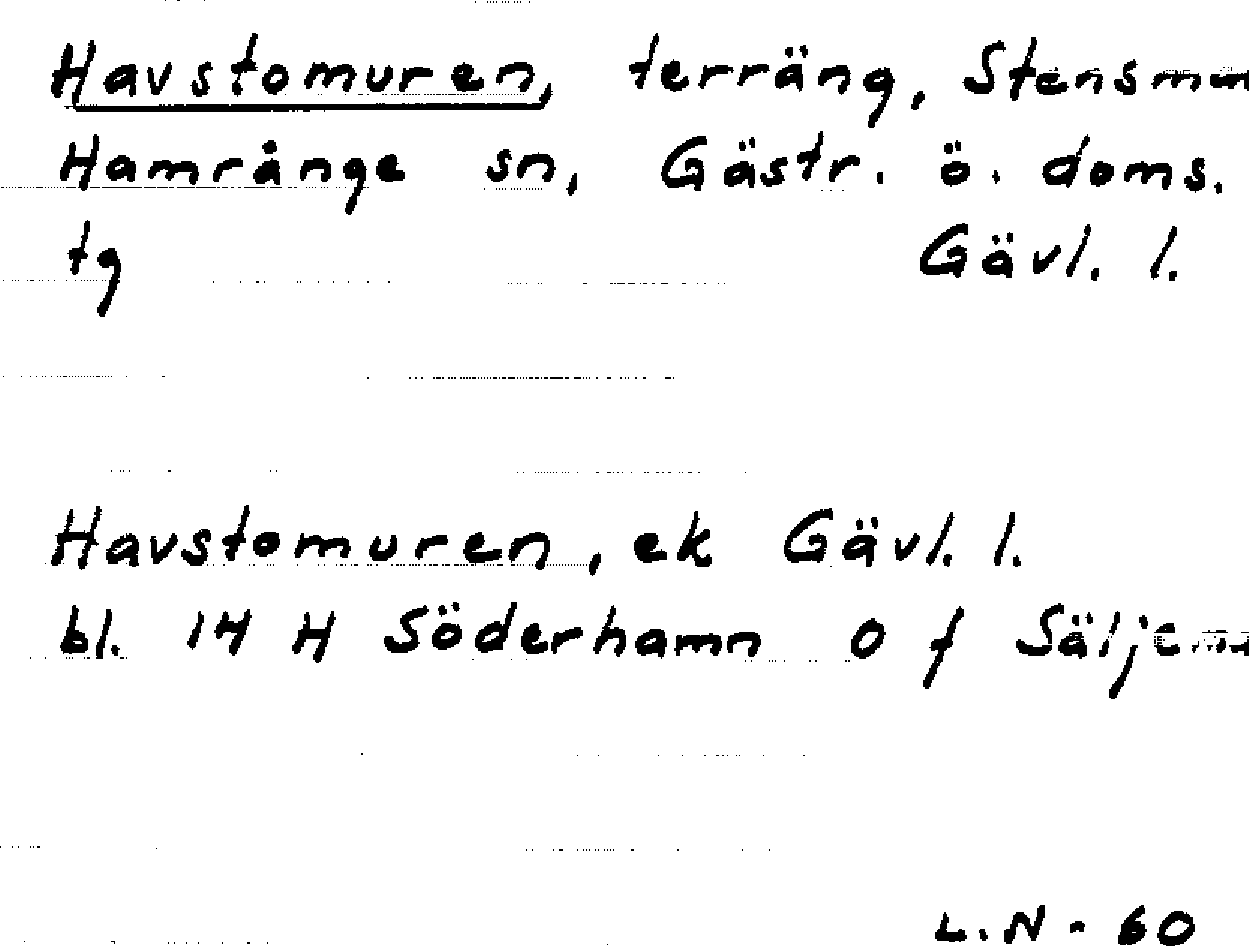 Havstomuren, terräng,
Hamrånge sn, Gästr. ö. doms.
tg Gävl. l.
Havstomuren, ek Gävl. l.
bl. 14 H Söderhamn O f
L.N - 60